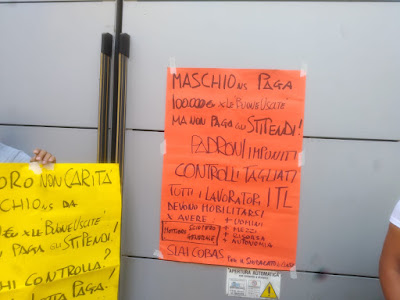 MASCHIO NS PAGA
100.000 € X LE "BUONE USCITE"
MA NON PAGA GLI STIPENDI!
PADRONI IMPUNITI
CONTROLLI TAGLIATI
TUTTI I LAVORATORI ITL
DEVONO MOBILITARSI
X AVERE + UOMINI
+ MEZZI
+ RISORSE
+ AUTONOMIA
SLAI COBAS
APERTURA AUTOMATICA
ORO NON CARITÀ
CHIO NS DA
X LE "BUONE USCITE"
PAGA GLI STIPENDI!
HI CONTROLLA?
PAGA!